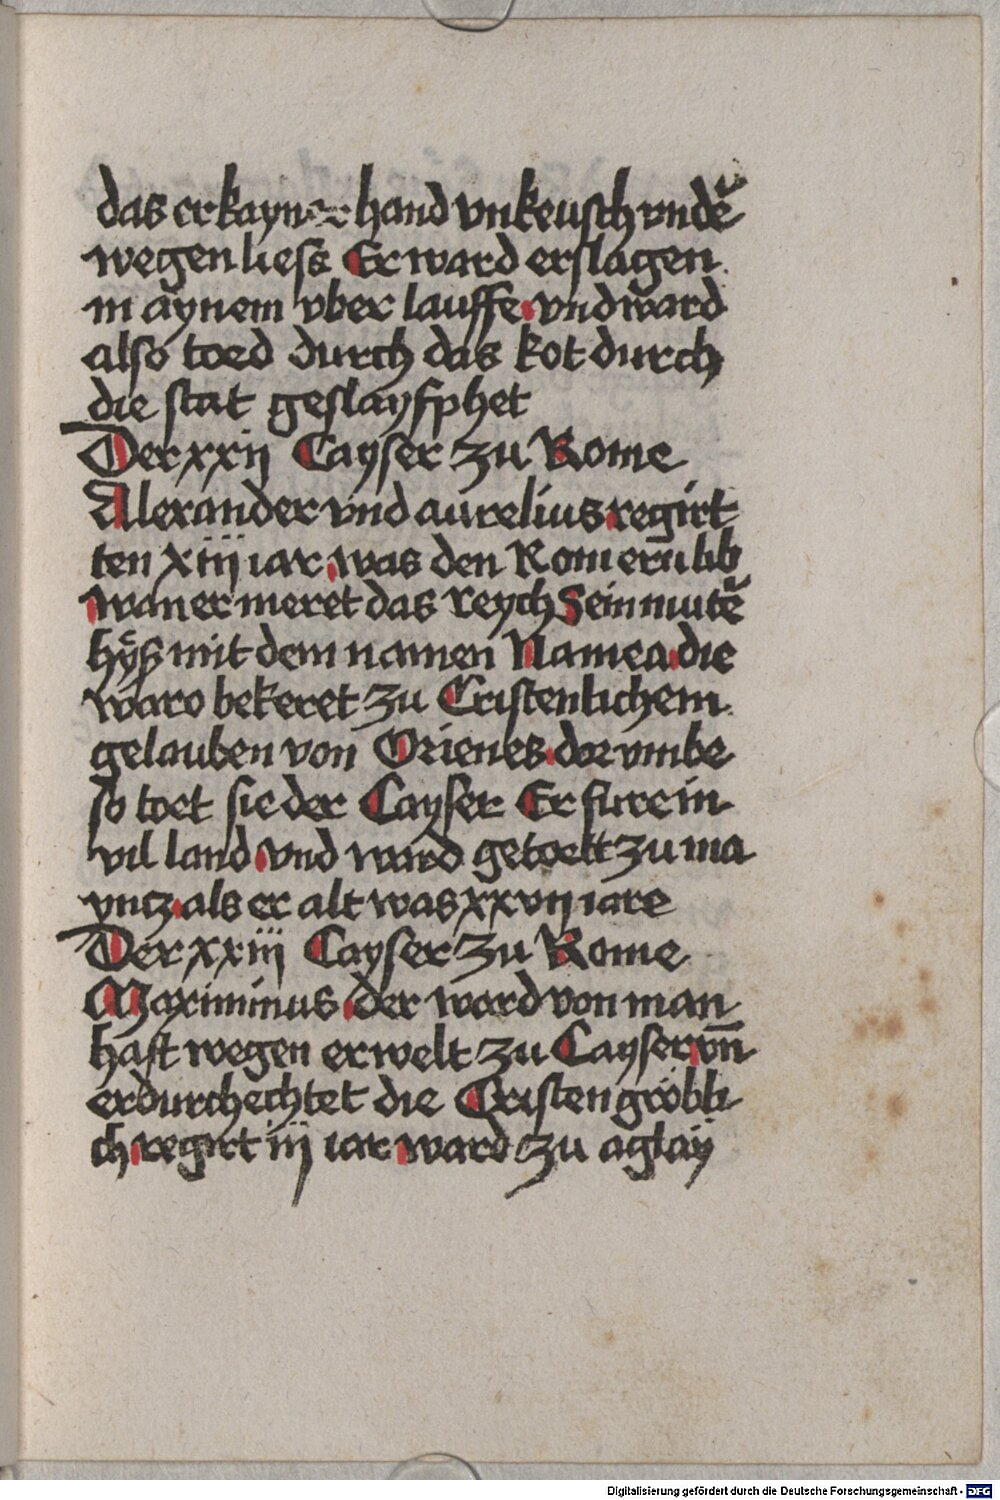 das er kayner hand vnkeusch vnderͤ
wegen liess Er ward erslagen
in aynem vber lauffe vnd ward
also toed durch das kot durch
die stat geslayfphet
Der xxij Cayser zu Rome
Alexander vnd aurelius regirt
ten xiij iar was den Romern̄ lib
wan er meret das reych Sein muter
hÿß mit dem namen Namea die
ward bekeret zu Cristenlichem
gelauben von Orienes dor vmbe
so toet sie der Cayser Er fure in
vil land vnd ward getoett zu ma
yntz als er alt was xxvij iare
Der xxiij Cayser zu Rome
Maximinus der ward von man
haft wegen erwelt zu Cayser vn̄
er durchechtet die Cristen gröbli
ch regirt iij iar ward zu aglaÿ
Digitalisierung gefördert durch die Deutsche Forschungsgemeinschaft - DFG